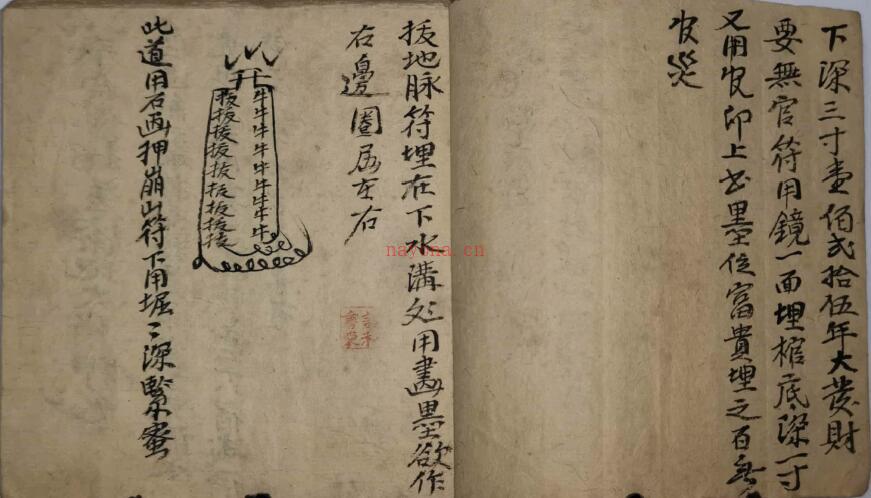 下深三寸壹佰弍拾伍年大發財
要無官符用鏡一面埋棺底深一寸
又用 印上书墨位富貴埋之百無
災
拔地脉符埋在下水溝处用畫墨欲作
右邊圈為左右
牛牛牛牛牛牛牛牛牛
拔拔拔拔拔拔拔拔拔
此道用石画押崩山符下用堀二深緊密
nayona.cn